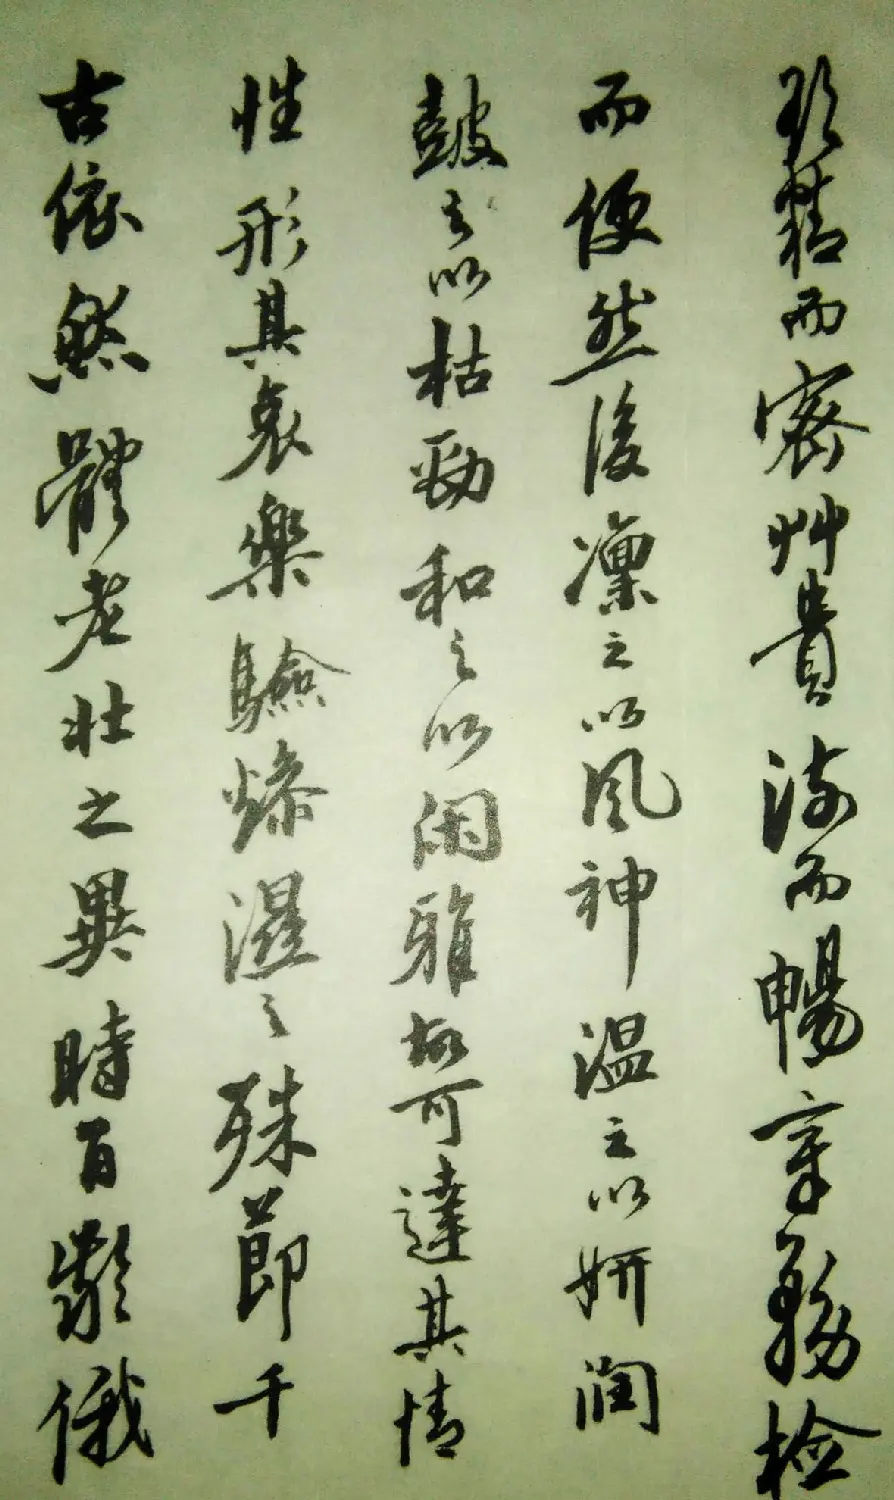 欲精而密艸貴流而暢章務檢
而便然後凜之以風神溫之以妍润
鼓之以枯勁和之以閑雅故可達其情
性形其哀樂驗燥濕之殊節千
古依然體老壯之異時百齡俄